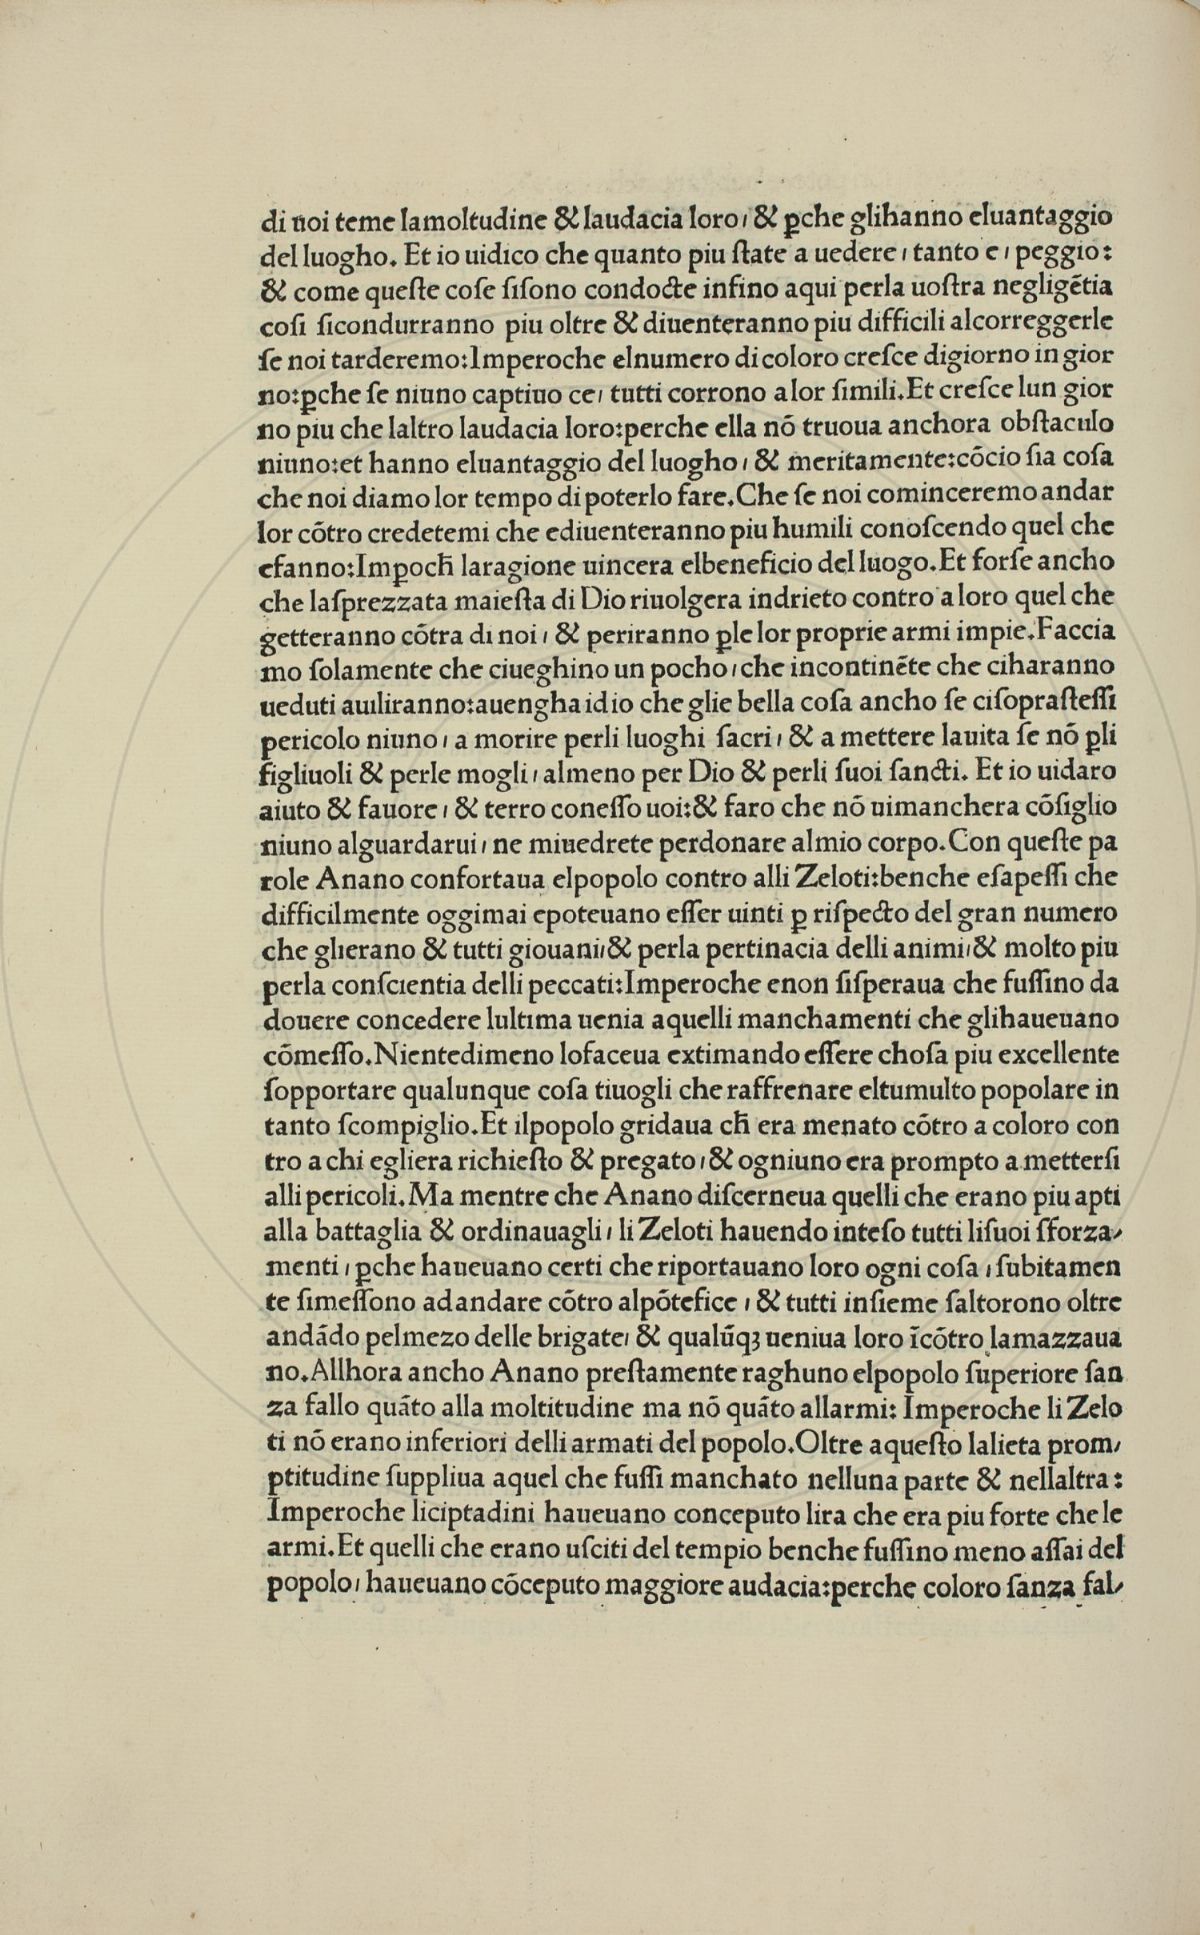 di noi teme lamoltudine & laudacia loro, & ꝑche glihanno eluantaggio
del luogho. Et io uidico che quanto piu ſtate a uedere, tanto e, peggio:
& come queſte coſe ſiſono condocte infino aqui perla uoſtra negligētia
coſi ſicondurranno piu oltre & diuenteranno piu difficili alcorreggerle
ſe noi tarderemo:Imperoche elnumero di coloro creſce digiorno in gior
no:ꝑche ſe niuno captiuo ce, tutti corrono a lor ſimili.Et creſce lun gior
no piu che laltro laudacia loro:perche ella nō truoua anchora obſtaculo
niuno:et hanno eluantaggio del luogho, & meritamente:cōcio ſia coſa
che noi diamo lor tempo di poterlo fare.Che ſe noi cominceremo andar
lor cōtro credetemi che ediuenteranno piu humili conoſcendo quel che
efanno:Imꝑocħ laragione uincera elbeneficio del luogo.Et forſe ancho
che laſprezzata maieſta di Dio riuolgera indrieto contro a loro quel che
getteranno cōtra di noi, & periranno ꝑle lor proprie armi impie.Faccia
mo ſolamente che ciueghino un pocho, che incontinēte che ciharanno
ueduti auiliranno:auengha idio che glie bella coſa ancho ſe ciſopraſteſſi
pericolo niuno, a morire perli luoghi ſacri, & a mettere lauita ſe nō ꝑli
figliuoli & perle mogli, almeno per Dio & perli ſuoi ſancti. Et io uidaro
aiuto & fauore, & terro coneſſo uoi:& faro che nō uimanchera cōſiglio
niuno alguardarui, ne miuedrete perdonare almio corpo.Con queſte pa
role Anano confortaua elpopolo contro alli Zeloti:benche eſapeſſi che
difficilmente oggimai epoteuano eſſer uinti ꝑ riſpecto del gran numero
che glierano & tutti giouani,& perla pertinacia delli animi,& molto piu
perla conſcientia delli peccati:Imperoche enon ſiſperaua che fuſſino da
douere concedere lultima uenia aquelli manchamenti che glihaueuano
cōmeſſo.Nientedimeno lofaceua extimando eſſere choſa piu excellente
ſopportare qualunque coſa tiuogli che raffrenare eltumulto popolare in
tanto ſcompiglio.Et ilpopolo gridaua cħ era menato cōtro a coloro con
tro a chi egliera richieſto & pregato,& ogniuno era prompto a metterſi
alli pericoli.Ma mentre che Anano diſcerneua quelli che erano piu apti
alla battaglia & ordinauagli, li Zeloti hauendo inteſo tutti liſuoi sforza-
menti, ꝑche haueuano certi che riportauano loro ogni coſa, ſubitamen
te ſimeſſono ad andare cōtro alpōtefice, & tutti inſieme ſaltorono oltre
andādo pelmezo delle brigate, & qualūqꝫ ueniua loro īcōtro lamazzaua
no.Allhora ancho Anano preſtamente raghuno elpopolo ſuperiore ſan
za fallo quāto alla moltitudine ma nō quāto allarmi: Imperoche li Zelo
ti nō erano inferiori delli armati del popolo.Oltre aqueſto lalieta prom-
ptitudine ſuppliua aquel che fuſſi manchato nelluna parte & nellaltra:
Imperoche liciptadini haueuano conceputo lira che era piu forte che le
armi.Et quelli che erano uſciti del tempio benche fuſſino meno aſſai del
popolo, haueuano cōceputo maggiore audacia:perche coloro ſanza fal-